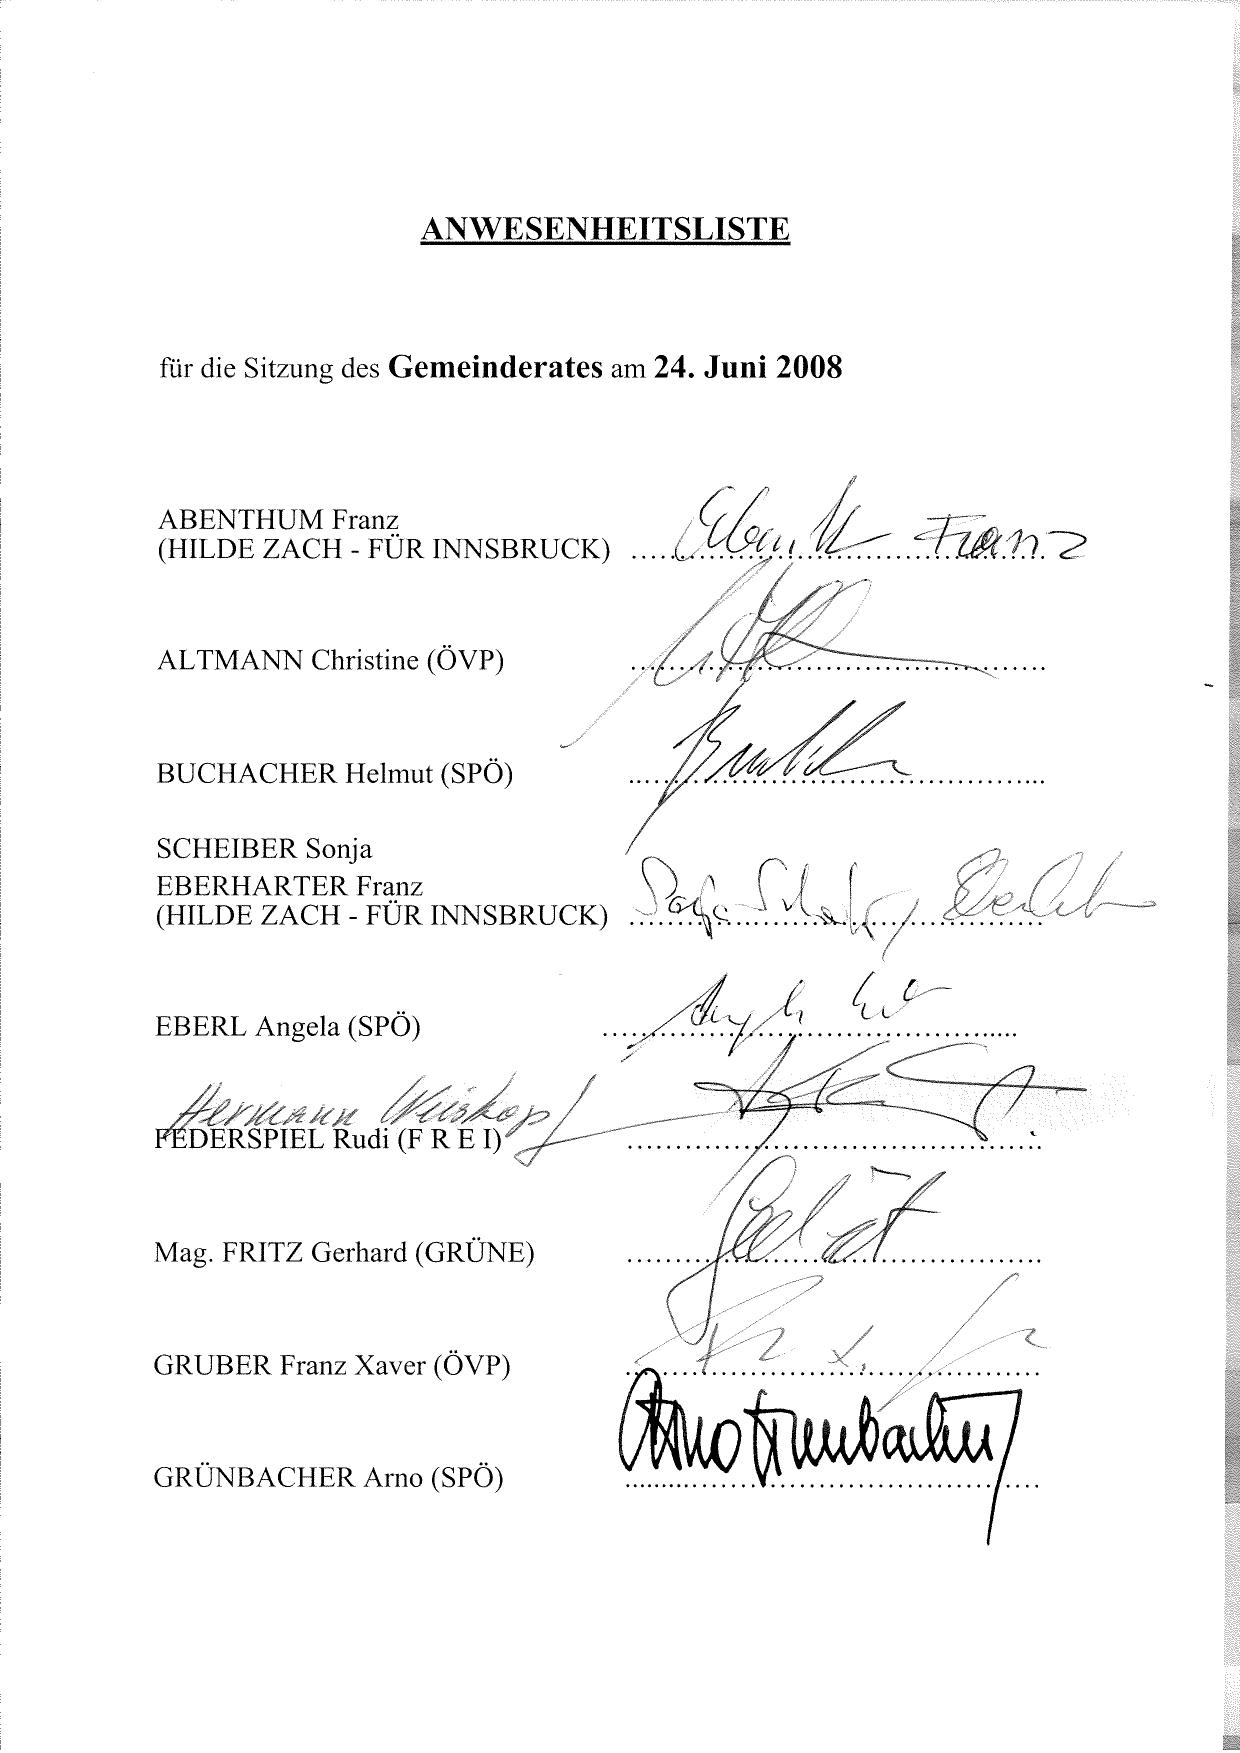 ANWESENHEITSLISTE
für die Sitzung des Gemeinderates am 24. Juni 2008
ABENTHUM Franz
(HILDE ZACH - FÜR INNSBRUCK) Franz
ALTMANN Christine (ÖVP)
BUCHACHER Helmut (SPÖ)
SCHEIBER Sonja
EBERHARTER Franz
(HILDE ZACH - FÜR INNSBRUCK)
EBERL Angela (SPÖ)
Hermann Weiskopf
FEDERSPIEL Rudi (F R E I)
Mag. FRITZ Gerhard (GRÜNE)
GRUBER Franz Xaver (ÖVP)
GRÜNBACHER Arno (SPÖ) Arno Grünbacher